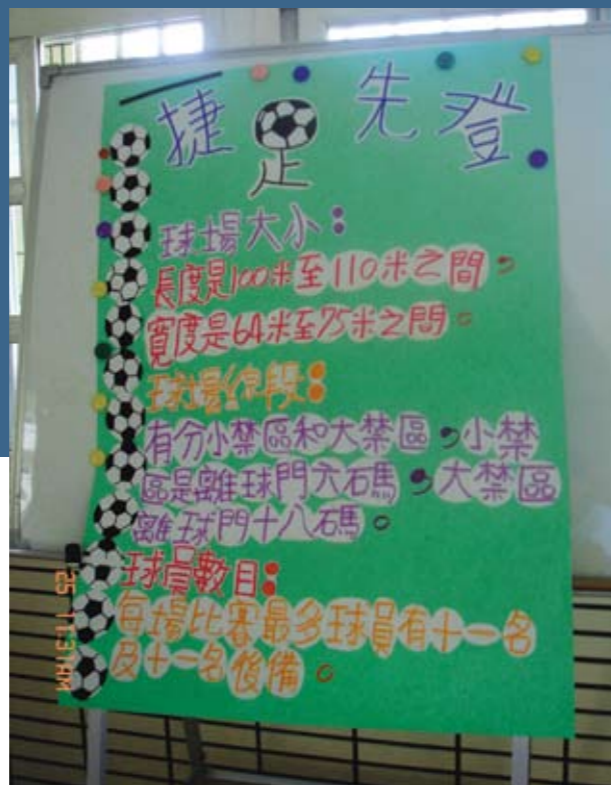 捷足先登
球場大小：
長度是100米至110米之間，
寬度是64米至75米之間。
球場線段：
有分小禁區和大禁區，小禁
區是離球門六石馬，大禁區
離球門十八碼。
球員數目：
每場比賽最多球員有十一名
及十一名後備。